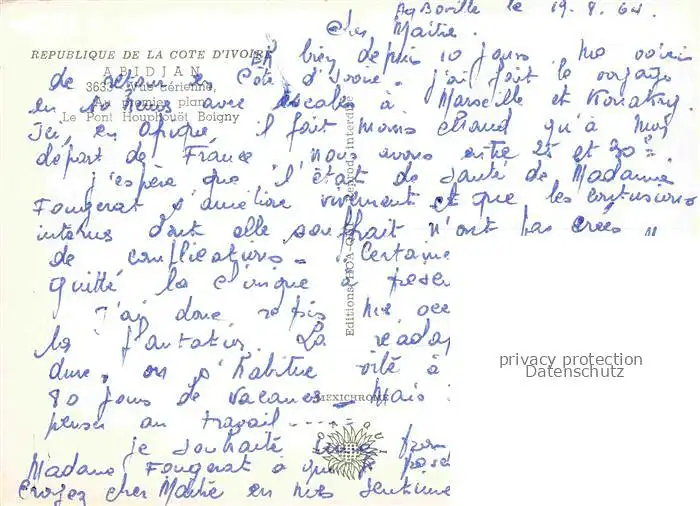 Agboville le 19.8.64.
Cher Maître.
REPUBLIQUE DE LA COTE D'IVOIRE
ABIDJAN
3633 Vue aérienne,
Au premier plan
Le Pont Houphouët Boigny
Eh bien depuis 10 jours me voici
de retour en Côte d'Ivoire. j'ai fait le voyage
en 10 heures avec escales à Marseille et Konakry.
Ici, en afrique il fait moins chaud qu'à mon
départ de France. nous avons entre 25 et 30°.
j'espère que l'état de santé de Madame
Fougerat s'améliore vivement et que les contusions
internes dont elle souffrait n'ont pas créés
de complications. Certaine
quitté la clinique à présen
J'ai donc repris mes occ
la plantation. La réadap
dure, on s'habitue vite à
80 jours de vacances - Mais
penser au travail ....
je souhaite
Madame Fougerat à que
Croyez cher Maître en mes sentime
Editions HOA-QUI
Reprod. interdite
MEXICHROME
privacy protection
Datenschutz